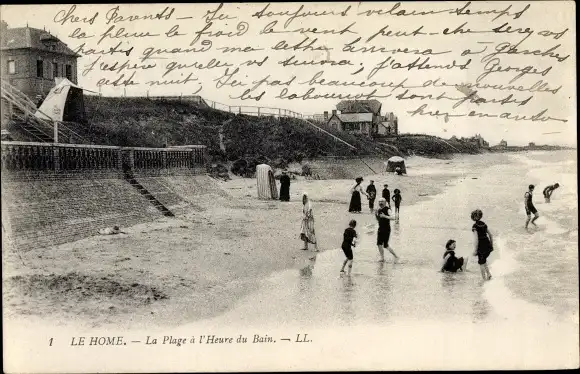 Chers Parents — Ici toujours vilain temps
la pluie le froid le vent peut-être serez vous
partis quand ma lettre arrivera à Garches
J'espère qu'elle vs suivra. J'attends Georges
cette nuit. Ici pas beaucoup de nouvelles
les laboureurs sont partis
hier en auto
1 LE HOME. — La Plage à l'Heure du Bain. — LL.